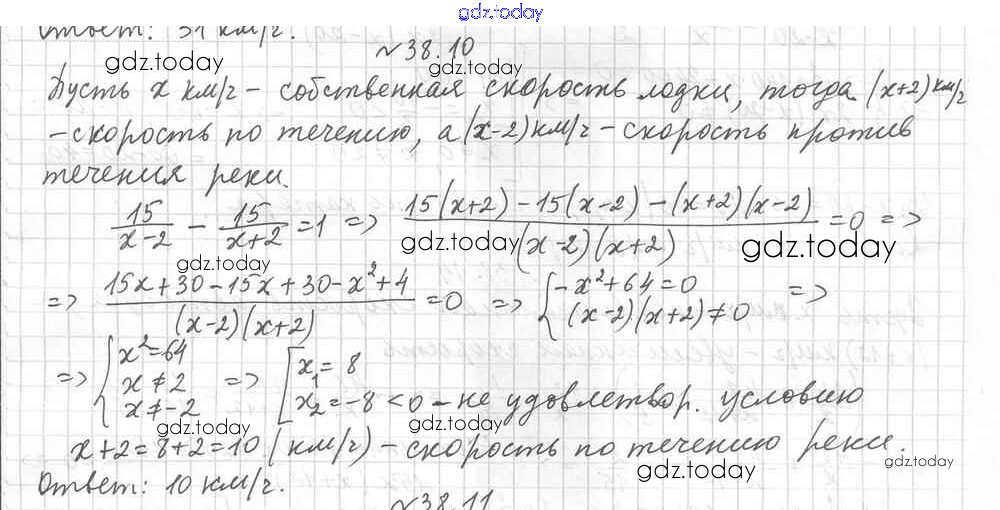 gdz.today
Ответ: 31 км/ч.
№38.10
gdz.today gdz.today
Пусть x км/ч - собственная скорость лодки, тогда (x+2) км/ч
- скорость по течению, а (x-2) км/ч - скорость против
течения реки.
15/(x-2) - 15/(x+2) = 1 => (15(x+2) - 15(x-2) - (x+2)(x-2))/((x-2)(x+2)) = 0 =>
gdz.today gdz.today gdz.today
=> (15x+30-15x+30-x²+4)/((x-2)(x+2)) = 0 => { -x²+64=0 (x-2)(x+2)≠0 =>
=> { x²=64 x≠2 x≠-2 => [ x₁=8 x₂=-8<0 - не удовлетвор. условию
gdz.today gdz.today gdz.today
x+2=8+2=10 (км/ч) - скорость по течению реки.
gdz.today gdz.today
Ответ: 10 км/ч.
№38.11